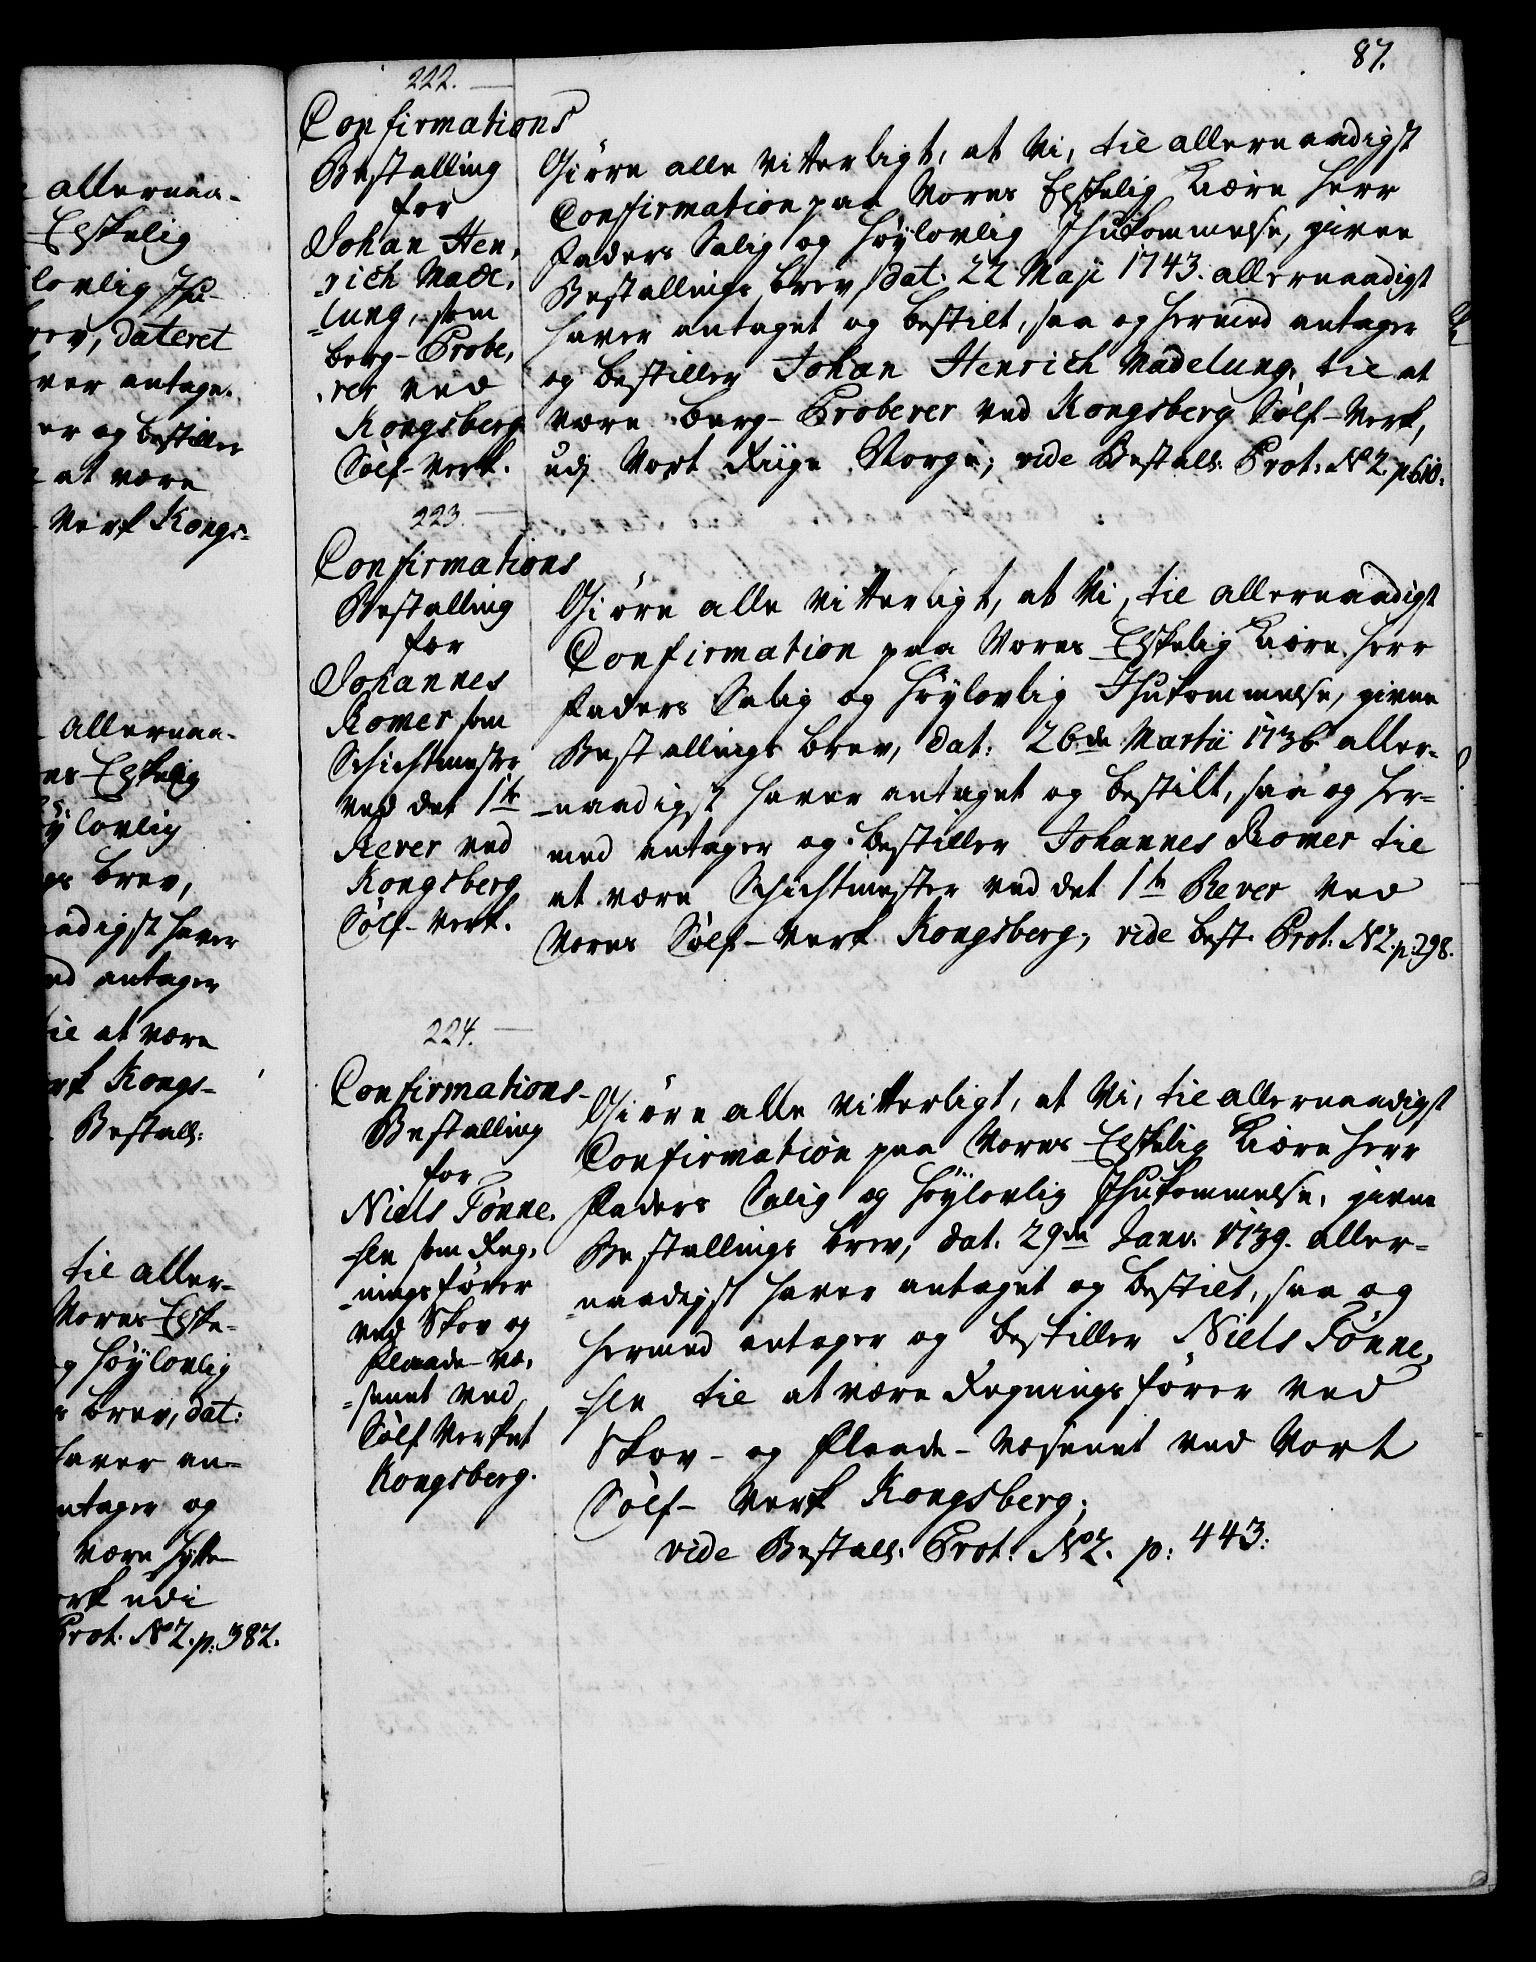 87.
222.
Confirmations
Bestalling
for
Johan Hen,
,rich Made,
=lung, som
berg-Probe,
,rer ved
Kongsberg
Sölf-Verk.
Giöre alle vitterligt, at Vi, til allernaadigst
Confirmation paa Vores Elskelig Kiære Herr
Faders Salig og Höylovlig Ihukommelse, givne
Bestallings brev, dat: 22 Maji 1743. allernaadigst
haver antaget og bestilt, saa og hermed antager
og bestiller Johan Henrich Madelung, til at
være berg-Proberer ved Kongsberg Sölf-Verk,
udj Vort Riige Norge; vide Bestall: Prot: No 2. p. 610.
223.
Confirmations
Bestalling
for
Johannes
Romer som
Schichtmester
ved det 1te
Rever ved
Kongsberg
Sölf-Verk.
Giöre alle vitterligt, at Vi, til allernaadigst
Confirmation paa Vores Elskelig Kiære Herr
Faders Salig og Höylovlig Ihukommelse, givne
Bestallings brev, dat: 26de Martii 1736 aller=
=naadigst haver antaget og bestilt, saa og her=
med antager og bestiller Johannes Romer til
at være Schichtmester ved det 1te Rever ved
Vores Sölf-Verk Kongsberg; vide best. Prot. No 2. p: 298.
224.
Confirmations-
Bestalling
for
Niels Tønne,
sen som Reg,
=nings förer
ved Skov og
Flaade-Væ,
=senet ved
Sölf Verket
Kongsberg.
Giöre alle vitterligt, at Vi, til allernaadigst
Confirmation paa Vores Elskelig Kiære Herr
Faders Salig og Höylovlig Ihukommelse, givne
Bestallings brev, dat. 29de Janv. 1739. aller=
=naadigst haver antaget og bestilt, saa og
hermed antager og bestiller Niels Tønne,
=sen til at være Regnings förer ved
Skov- og Flaade-Væsenet ved Vort
Sölf-Verk Kongsberg;
vide Bestall: Prot: No 2. p: 443:
allernaa-
Elskelig
lovlig Ihu-
rev, dateret
ver antage.
er og bestiller
at være
Verk Kongs=
allernaa-
es Elskelig
ylovlig
gs brev,
adigst haver
ed antager
til at være
rk Kongs=
Bestall:
til aller=
Vores Elske=
g Höylovlig
s brev, dat:
haver an=
ntager og
være Hytte
erk udi
Prot. No 2. p: 382.